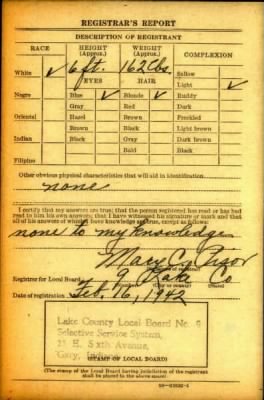 REGISTRAR'S REPORT
DESCRIPTION OF REGISTRANT
RACE HEIGHT (Approx.) WEIGHT (Approx.) COMPLEXION
White ✓ 6 ft. 162 lbs. Sallow
EYES HAIR Light ✓
Negro Blue ✓ Blonde ✓ Ruddy
Gray Red Dark
Oriental Hazel Brown Freckled
Brown Black Light brown
Indian Black Gray Dark brown
Bald Black
Filipino
Other obvious physical characteristics that will aid in identification
none
I certify that my answers are true; that the person registered has read or has had
read to him his own answers; that I have witnessed his signature or mark and that
all of his answers of which I have knowledge are true, except as follows:
none to my knowledge
Mary C.
Registrar for Local Board 9 Lake Co
(Number) (City or county)
Date of registration Feb 1942
Lake County Local Board No. 9
Selective Service System,
E. 5xth Avenue,
Gary, Indiana
(STAMP OF LOCAL BOARD)
(The stamp of the Local Board having jurisdiction of the registrant
shall be placed in the above space)